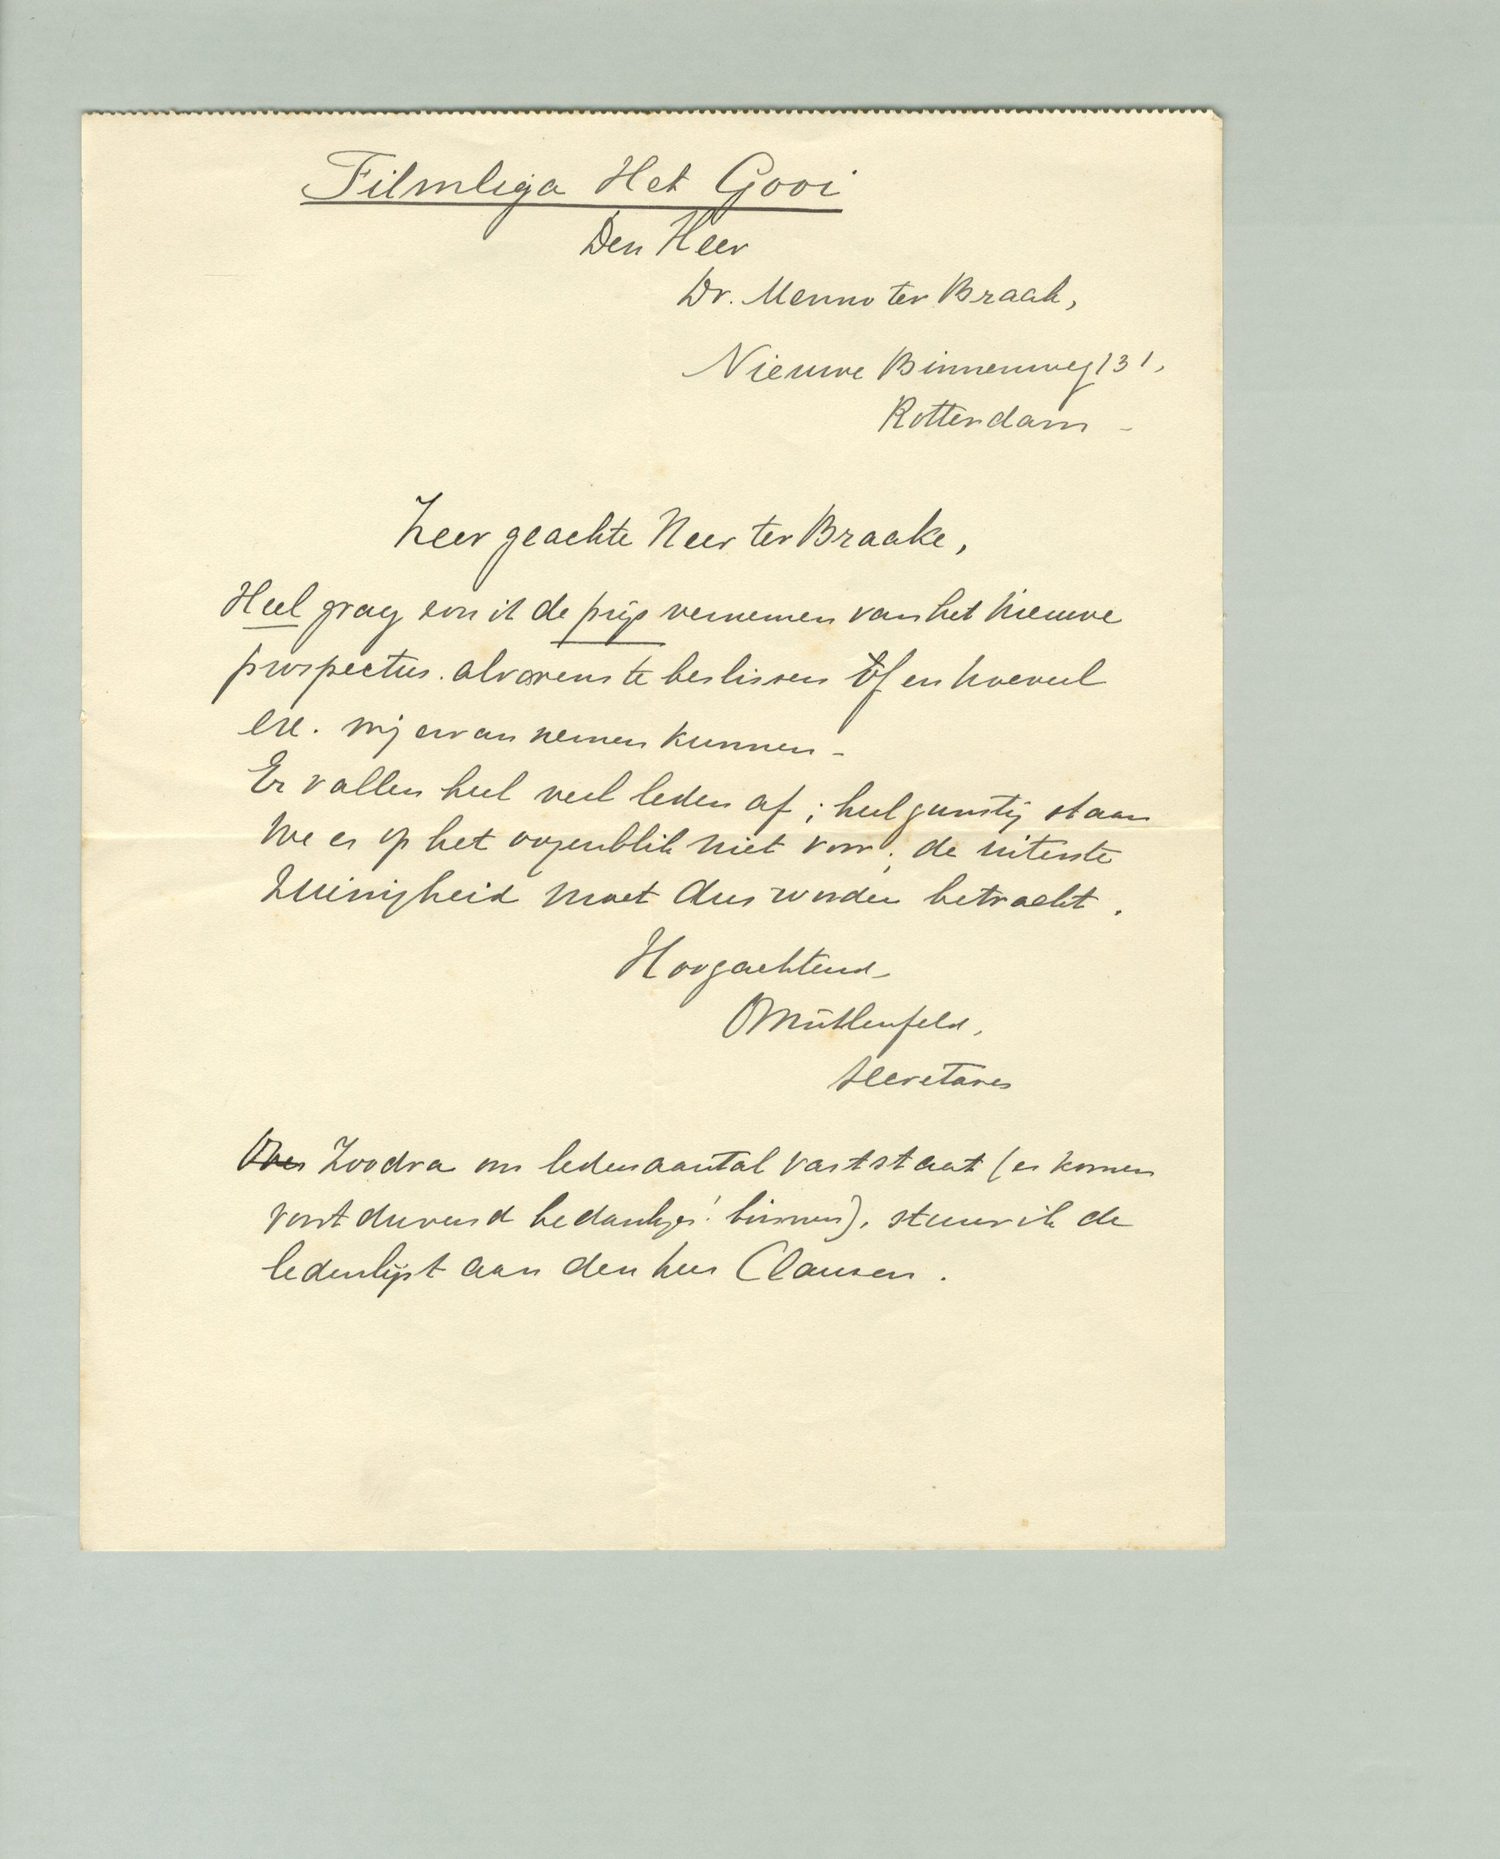 Filmliga Het Gooi
Den Heer
Dr. Menno ter Braak,
Nieuwe Binnenweg 131,
Rotterdam -
Zeer geachte Heer ter Braake,
Heel graag zou ik de prijs vernemen van het nieuwe
prospectus. alvorens te beslissen òf en hoeveel
ex. wij ervan nemen kunnen -
Er vallen heel veel leden af; heel gunstig staan
we er op het oogenblik niet voor; de uiterste
zuinigheid moet dus worden betracht.
Hoogachtend
Mühlenfeld,
secretares
Zoodra ons ledenaantal vaststaat (er komen
voortdurend bedankjes! binnen), stuur ik de
ledenlijst aan den heer Clausen.